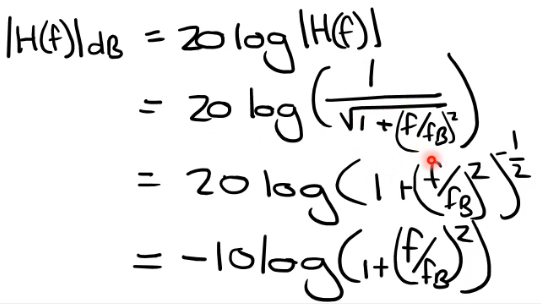 |H(f)|dB = 20 log |H(f)|
= 20 log (1/√(1+(f/fB)²))
= 20 log (1+(f/fB)²)^-1/2
= -10 log (1+(f/fB)²)